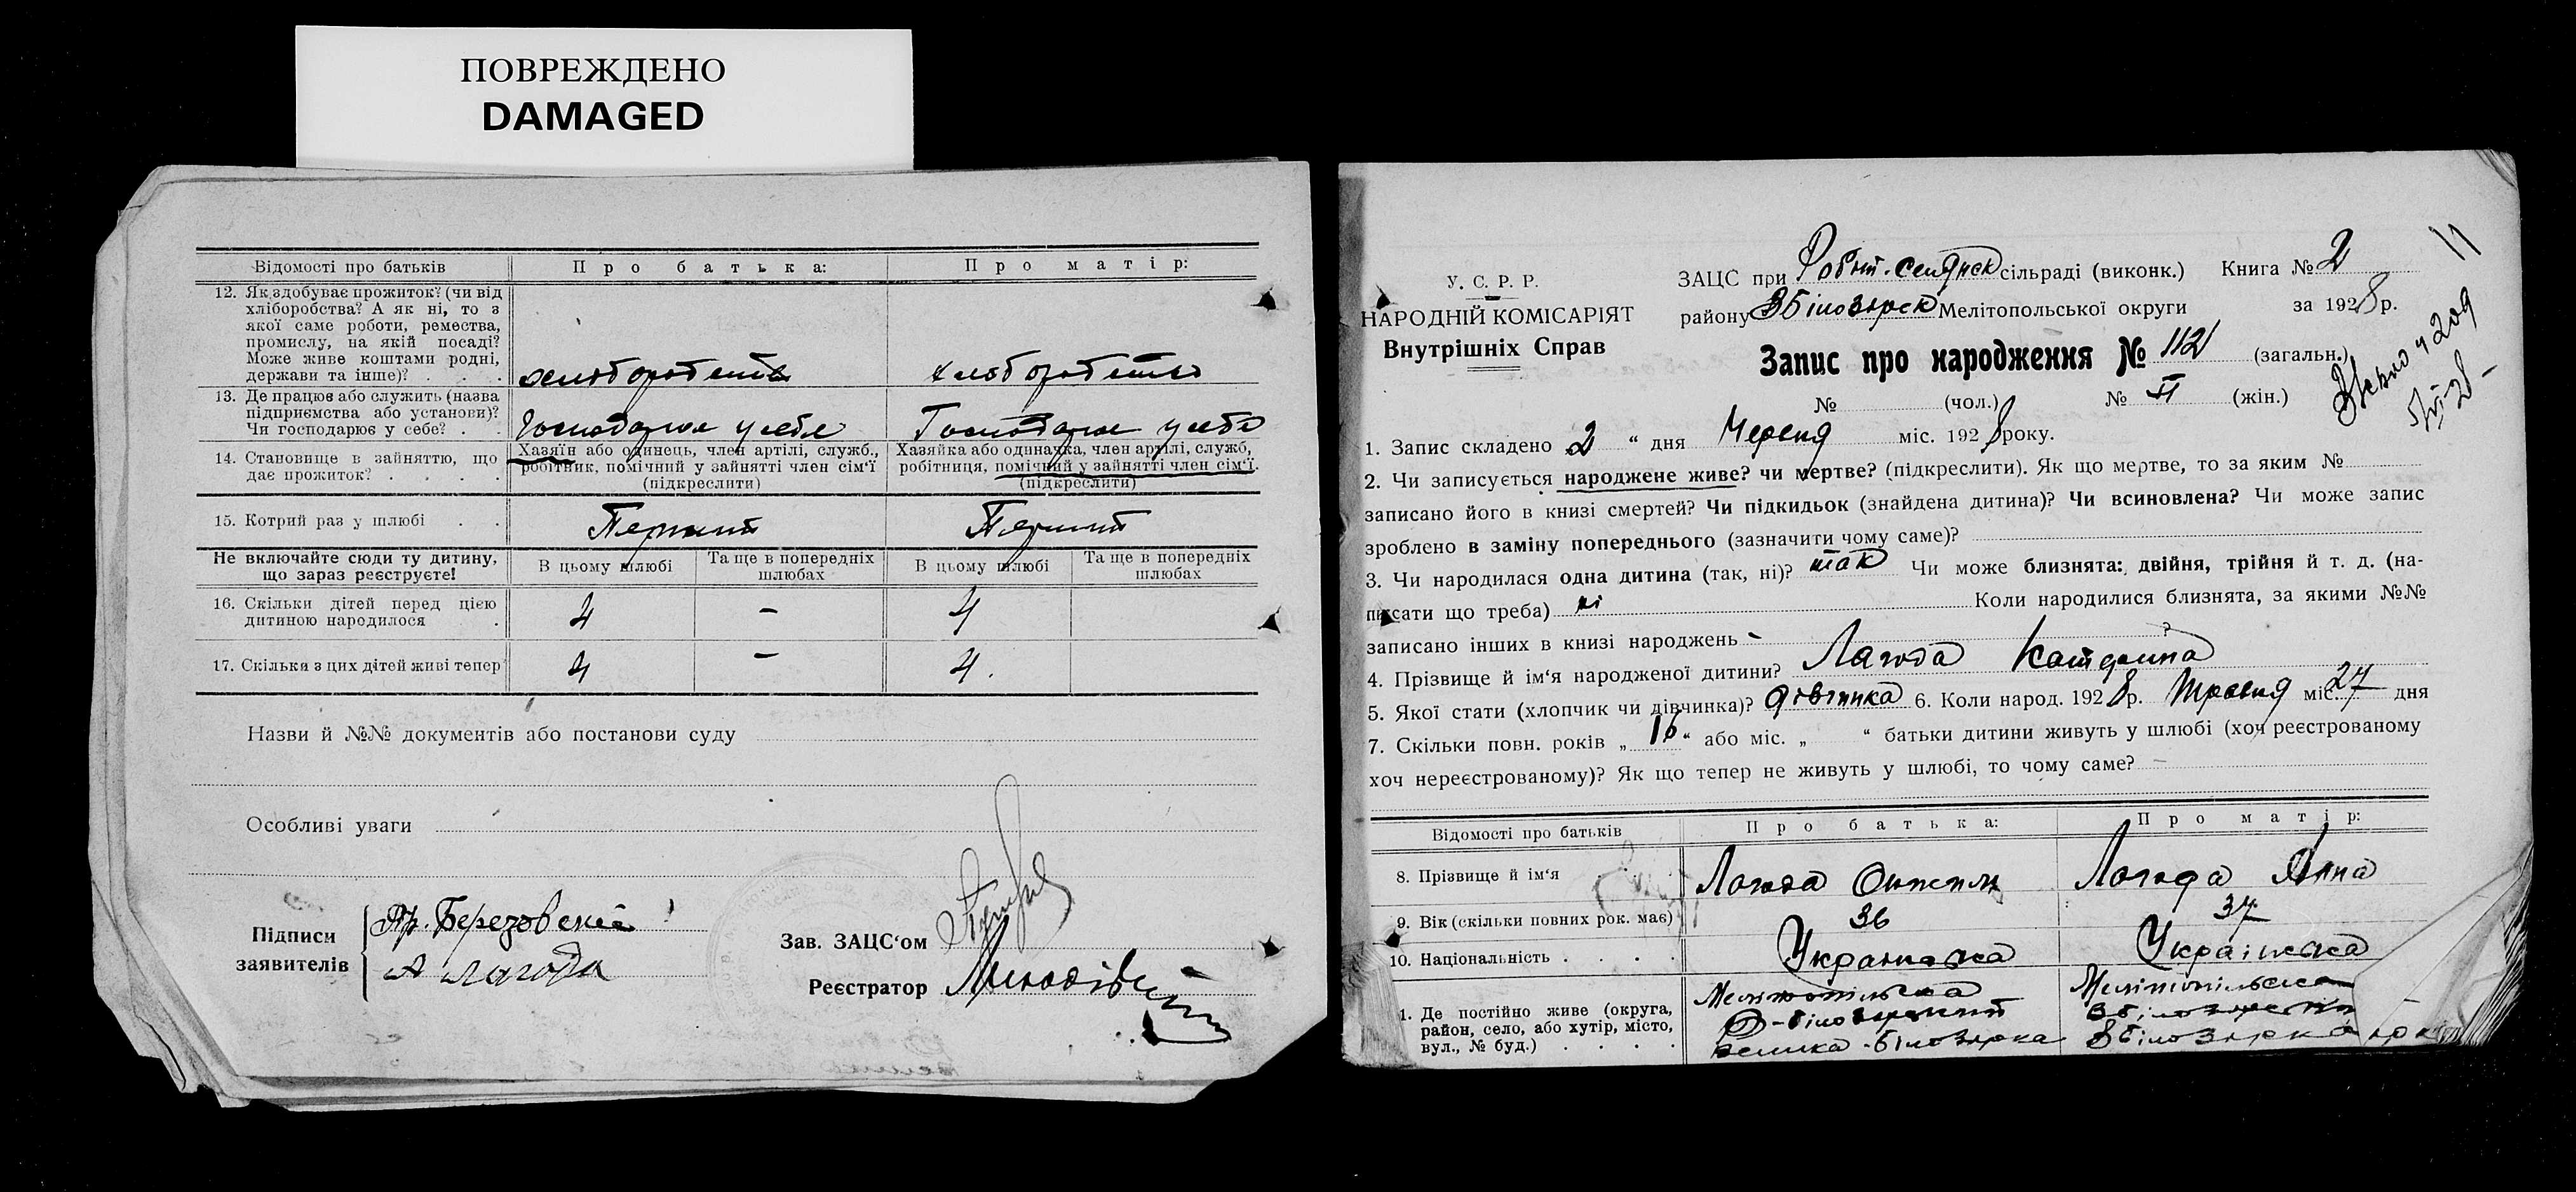 ПОВРЕЖДЕНО
DAMAGED
Відомості про батьків
Про батька:
Про матір:
12. Як здобуває прожиток? (чи від
хліборобства? А як ні, то з
якої саме роботи, ремества,
промислу, на якій посаді?
Може живе коштами родні,
держави та інше)? . . .
хліборобство
хліборобство
13. Де працює або служить (назва
підприємства або установи)?
Чи господарює у себе? . .
Господарює у себе
Господарює у себе
14. Становище в зайняттю, що
дає прожиток? . . . .
Хазяїн або одинець, член артілі, служб.,
робітник, помічний у зайнятті член сім'ї
(підкреслити)
Хазяйка або одиначка, член артілі, служб,
робітниця, помічний у зайнятті член сім'ї.
(підкреслити)
15. Котрий раз у шлюбі . .
Перший
Перший
Не включайте сюди ту дитину,
що зараз реєструєте!
В цьому шлюбі
Та ще в попередніх
шлюбах
В цьому шлюбі
Та ще в попередніх
шлюбах
16. Скільки дітей перед цією
дитиною народилося .
4 – 4
17. Скільки з цих дітей живі тепер
4 – 4.
Назви й №№ документів або постанови суду
Особливі уваги
Підписи
заявителів
Яр. Березовский
А Лагода
Зав. ЗАЦС'ом
Реєстратор
У. С. Р. Р.
НАРОДНІЙ КОМІСАРІЯТ
Внутрішніх Справ
ЗАЦС при Робіт.-селянск сільраді (виконк.) Книга № 2
району ВБілозірск Мелітопольської округи за 1928 р.
11
Запис про народження № 112 (загальн.)
№ (чол.) № (жін.)
1. Запис складено 2 “ дня Червня міс. 1928 року.
2. Чи записується народжене живе? чи мертве? (підкреслити). Як що мертве, то за яким №
записано його в книзі смертей? Чи підкидьок (знайдена дитина)? Чи всиновлена? Чи може запис
зроблено в заміну попереднього (зазначити чому саме)?
3. Чи народилася одна дитина (так, ні)? так Чи може близнята: двійня, трійня й т. д. (на-
писати що треба) ні Коли народилися близнята, за якими №№
записано інших в книзі народжень - ?
4. Прізвище й ім'я народженої дитини? Лагода Катерина
5. Якої стати (хлопчик чи дівчинка)? дівчинка 6. Коли народ. 1928 р. Травня міс. 27 дня
7. Скільки повн. років „ 16 “ або міс. „ “ батьки дитини живуть у шлюбі (хоч реєстрованому
хоч нереєстрованому)? Як що тепер не живуть у шлюбі, то чому саме? –
Відомості про батьків
Про батька:
Про матір:
8. Прізвище й ім'я
Лагода
Лагода Анна
9. Вік (скільки повних рок. має)
36
37
10. Національність . . . .
Українська
Українська
1. Де постійно живе (округа,
район, село, або хутір, місто,
вул., № буд.) . . . .
Мелітопільска
В-Білозірский
Велика-Білозірка
Мелітопільска
ВБілозірский
ВБілозірка